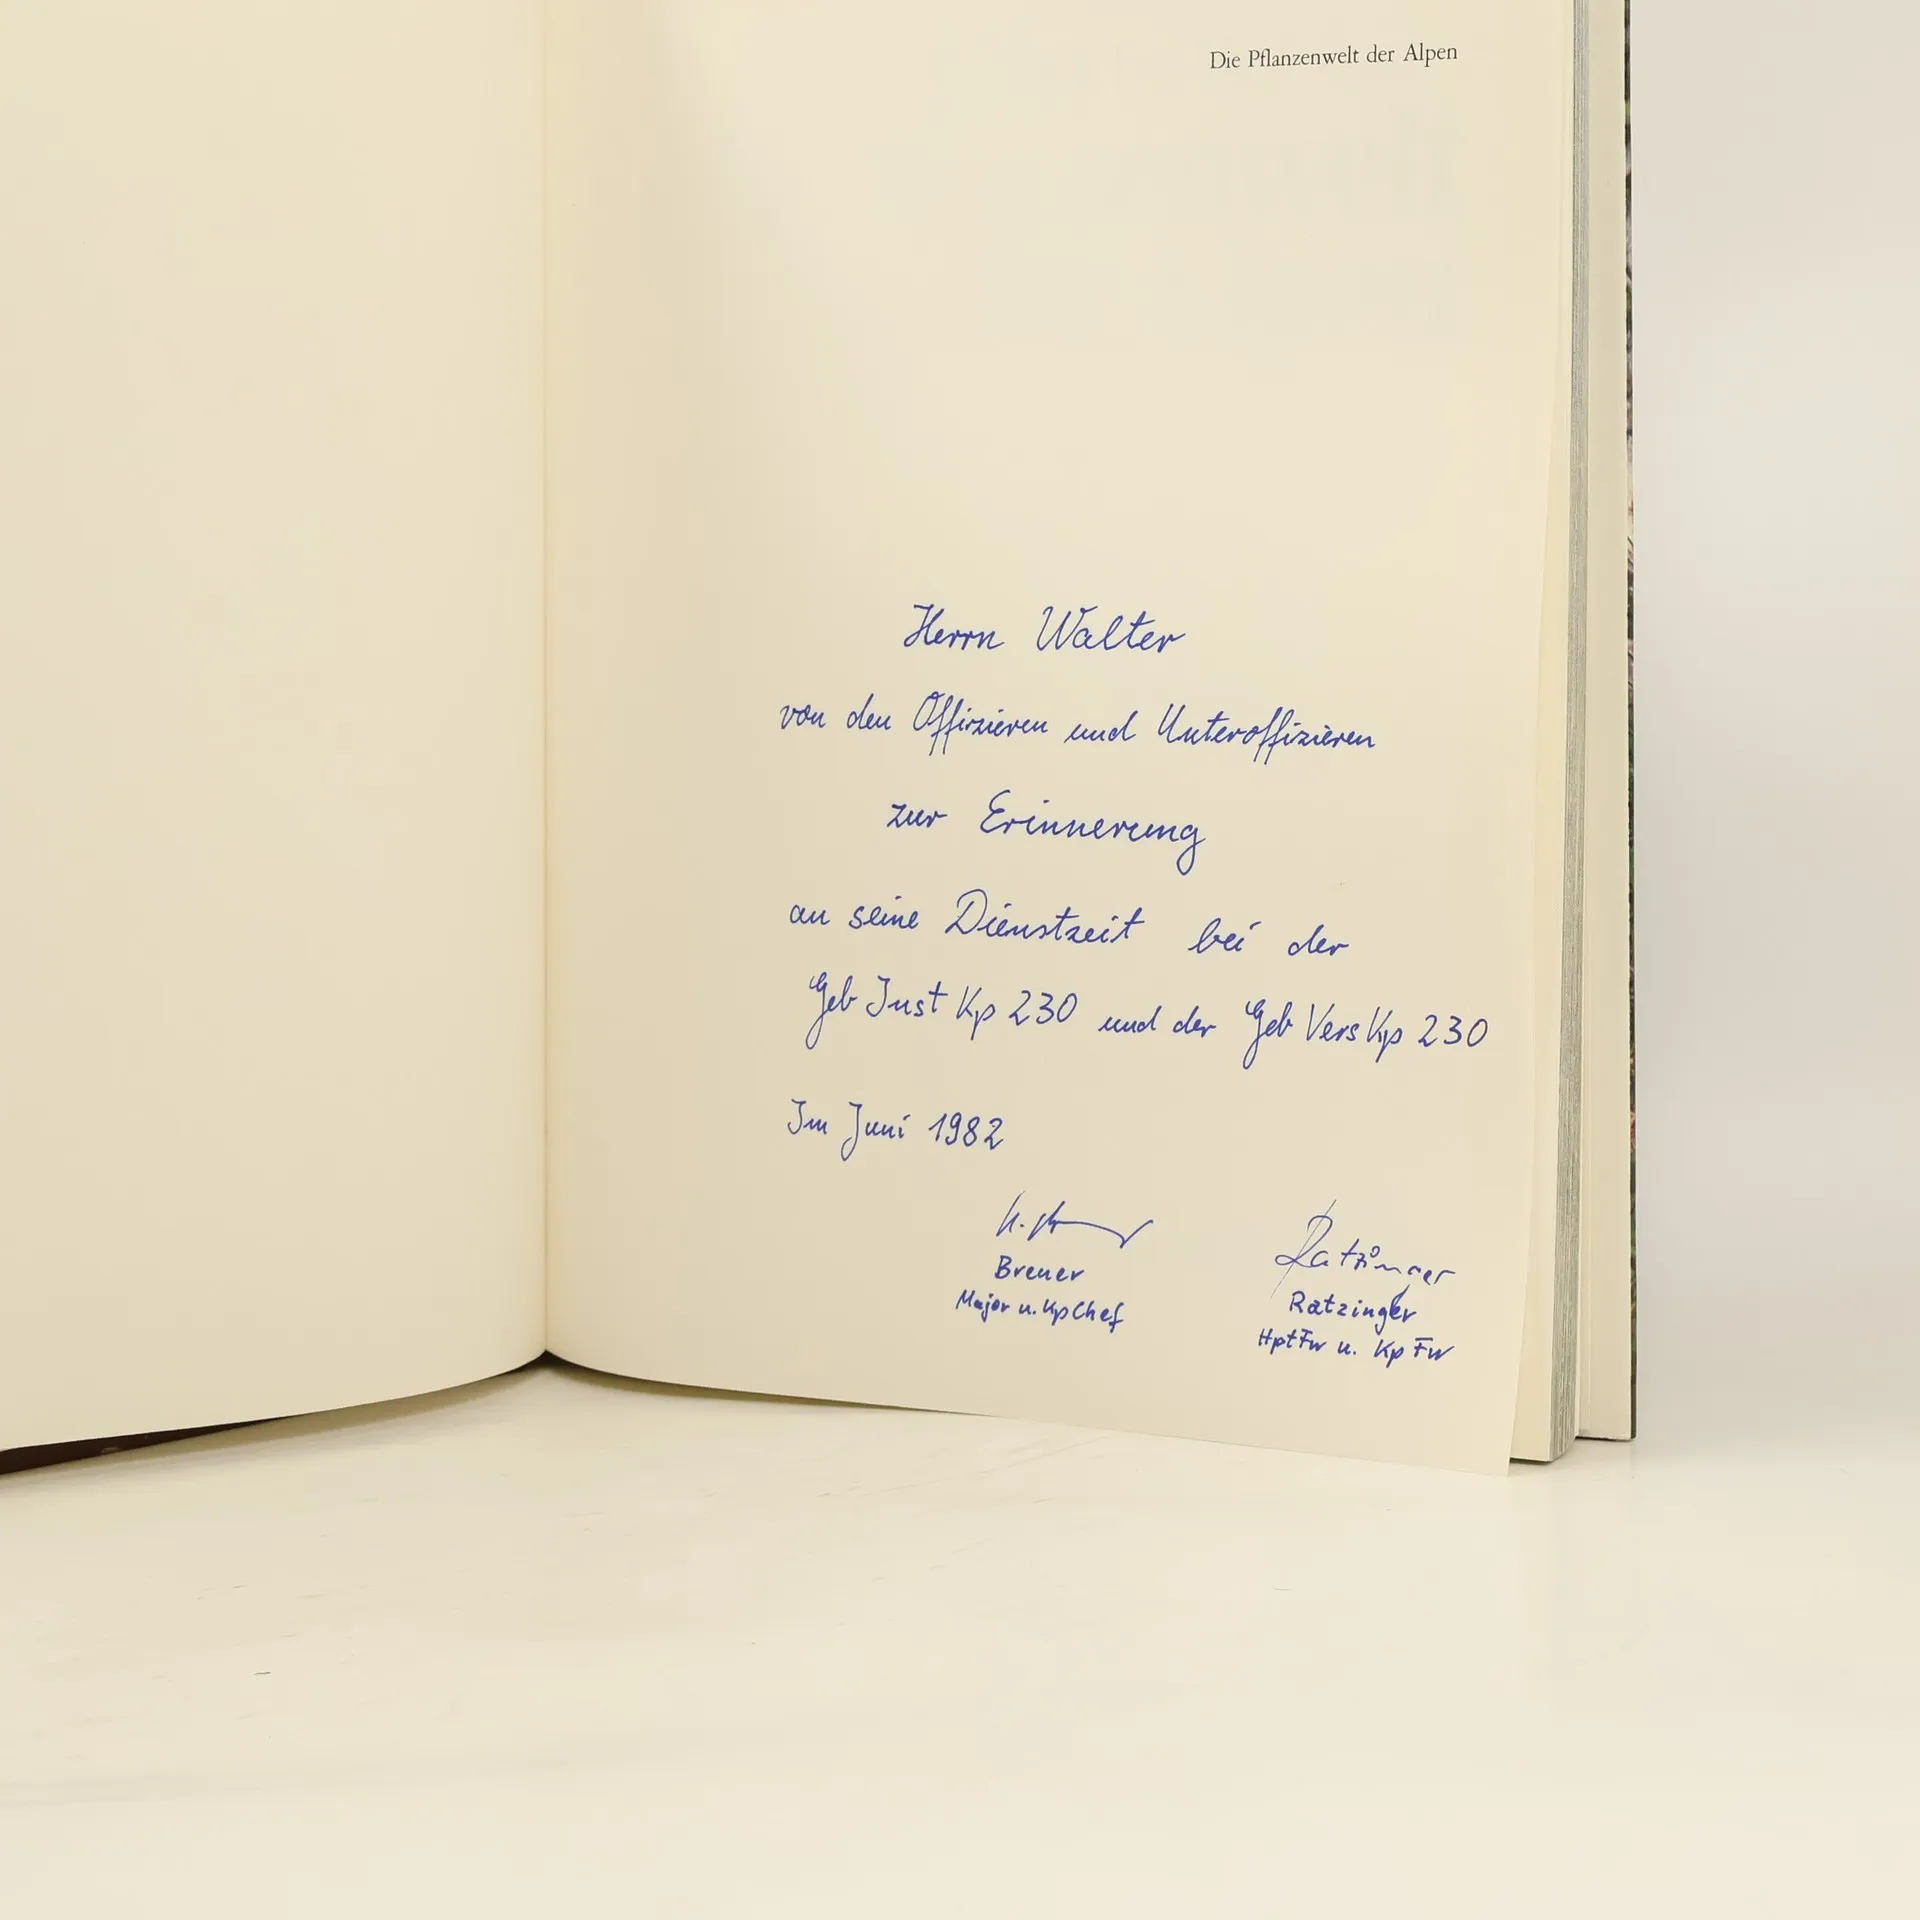 Die Pflanzenwelt der Alpen
Herrn Walter
von den Offizieren und Unteroffizieren
zur Erinnerung
an seine Dienstzeit bei der
Geb Inst Kp 230 und der Geb Vers Kp 230
Im Juni 1982
Ratzinger
Breuer
Ratzinger
Major u. KpChef
HptFw u. KpFw